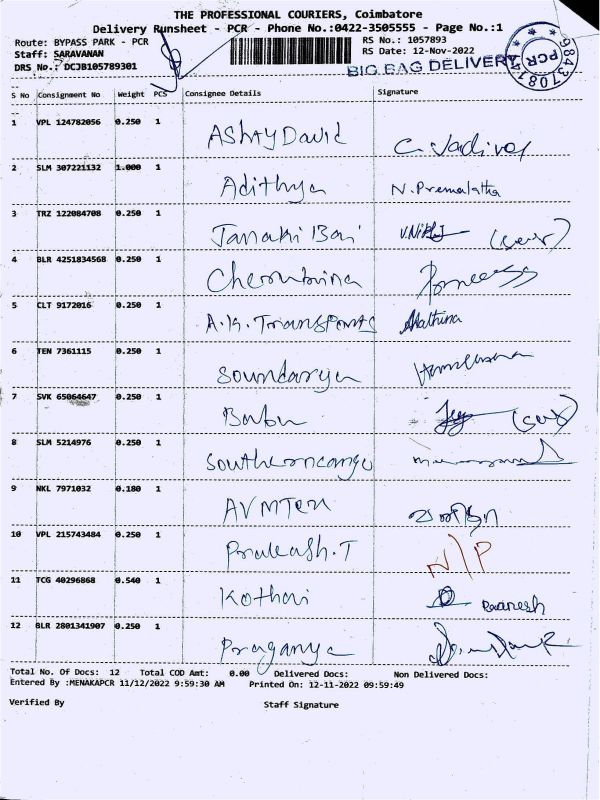 THE PROFESSIONAL COURIERS, Coimbatore
Delivery Runsheet - PCR - Phone No.:0422-3505555 - Page No.:1
Route: BYPASS PARK - PCR
Staff: SARAVANAN
DRS No.: DCJB105789301
RS No.: 1057893
RS Date: 12-Nov-2022
BIG BAG DELIVERY
PCR
S No Consignment No Weight PCS Consignee Details Signature
1 VPL 124782056 0.250 1 David
2 SLM 307221132 1.000 1 Adithya N. Premalatha
3 TRZ 122084708 0.250 1 Janaki Bai
4 BLR 4251834568 0.250 1 Cherubina
5 CLT 9172016 0.250 1 A.K. Transports
6 TEN 7361115 0.250 1 Soundarya
7 SVK 65064647 0.250 1 Babu
8 SLM 5214976 0.250 1 Southerncargo
9 NKL 7971032 0.180 1 AVMTEX
10 VPL 215743484 0.250 1 Prakash.T N/P
11 TCG 40296868 0.540 1 Kothari
12 BLR 2801341907 0.250 1 Praganya
Total No. Of Docs: 12 Total COD Amt: 0.00 Delivered Docs: Non Delivered Docs:
Entered By :MENAKAPCR 11/12/2022 9:59:30 AM Printed On: 12-11-2022 09:59:49
Verified By Staff Signature